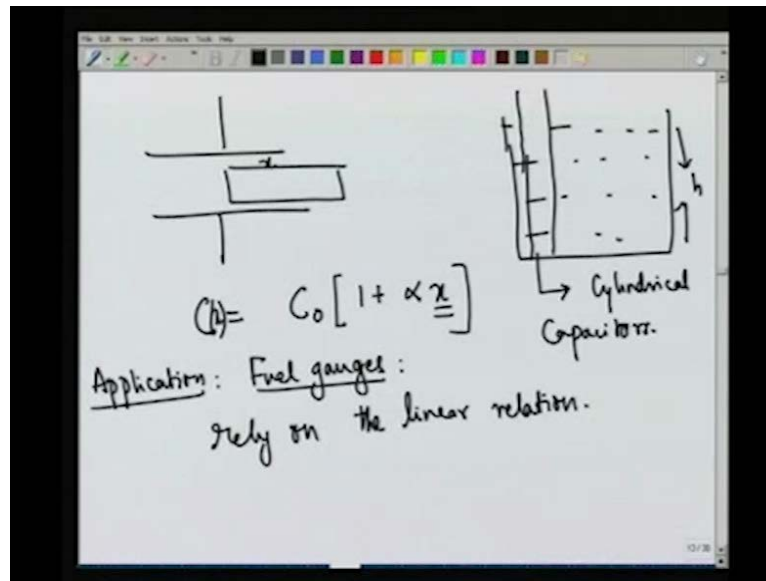 File Edit View Insert Actions Tools Help
x
h
C(x)= C₀[1+ αx]
Cylindrical
Capacitors.
Application: Fuel gauges:
rely on the linear relation.